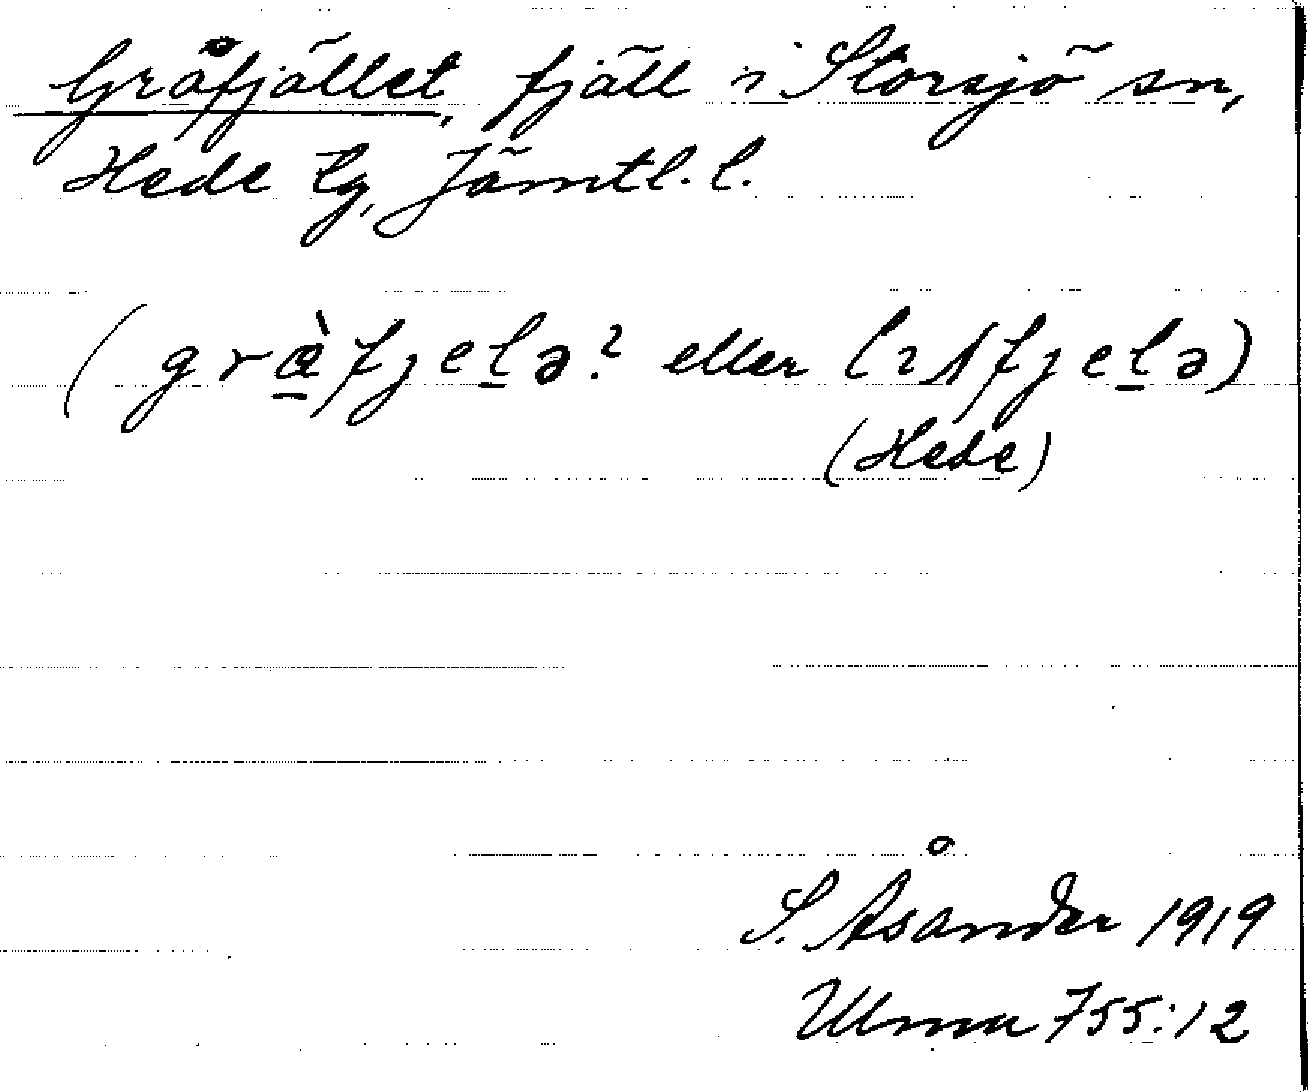 Gråfjället, fjäll i Storsjö sn,
Hede tg, Jämtl. l.
(græ̀fjeḻə? eller lɩsfjeḻə)
(Hede)
S. Åsander 1919
Ulma 755:12